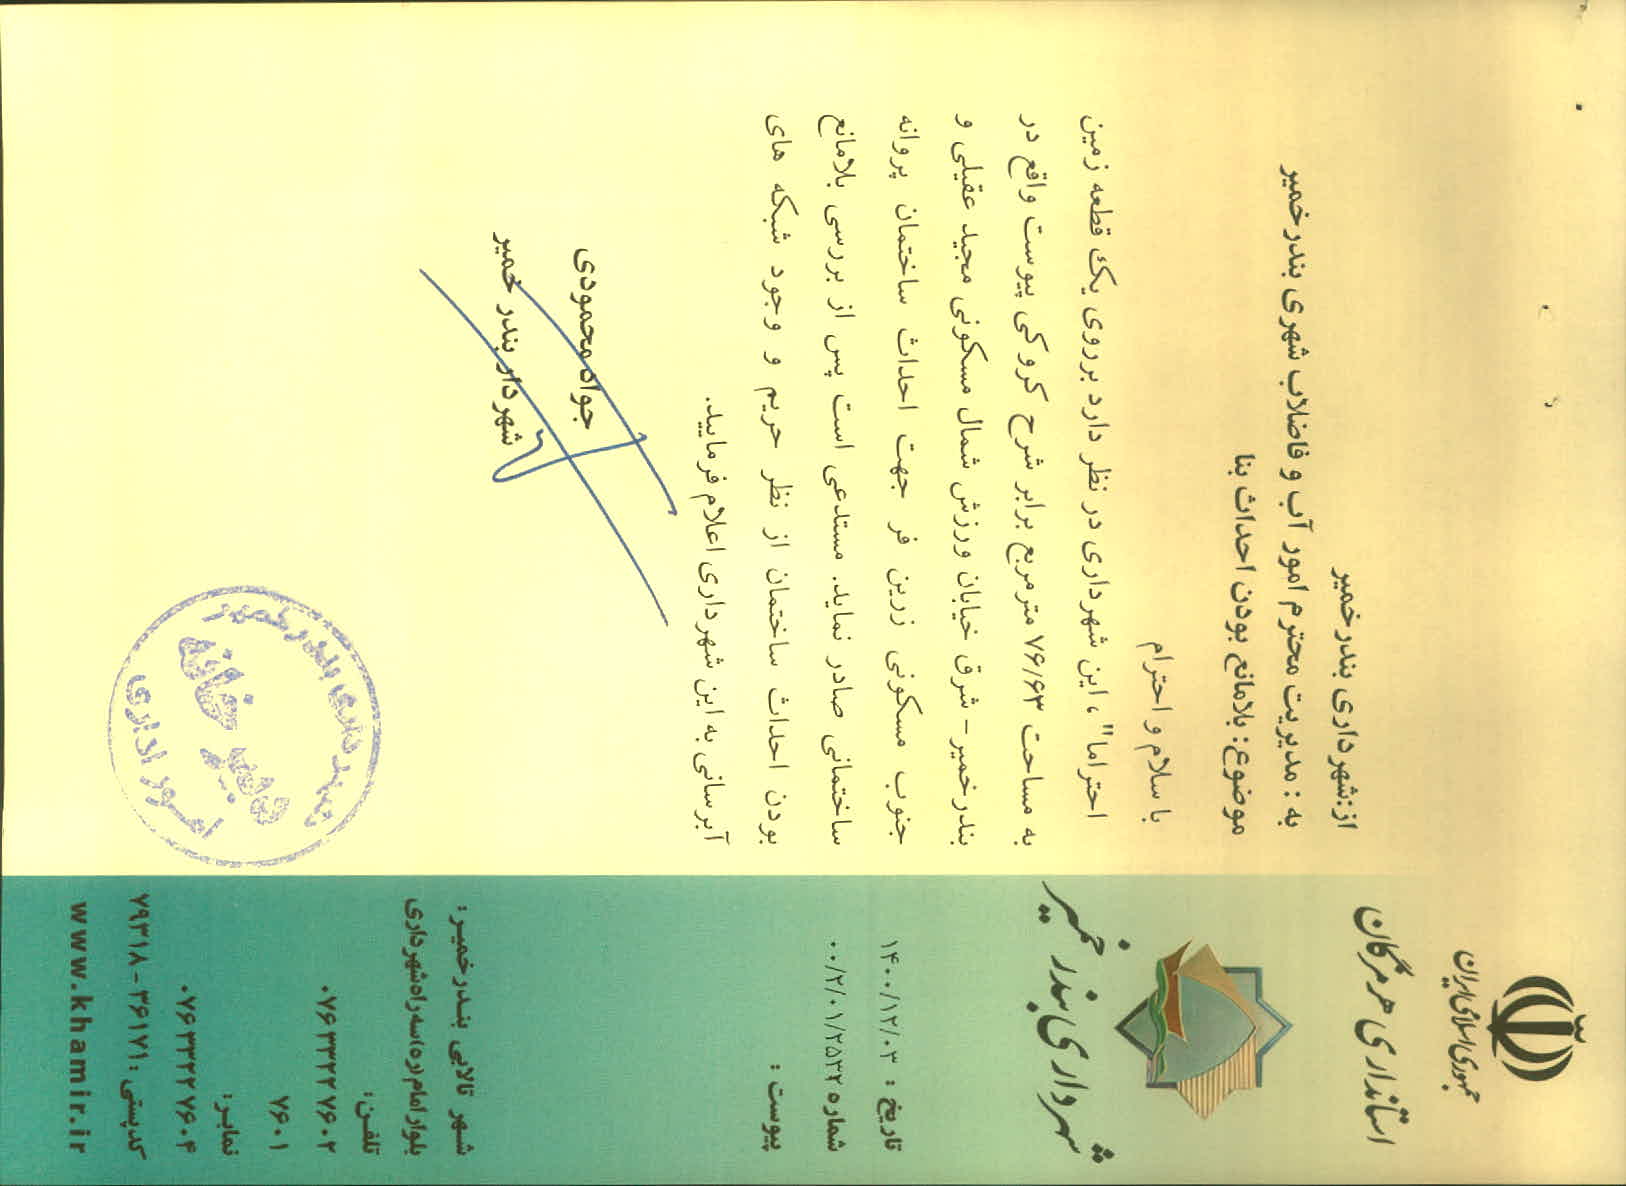 جمهوری اسلامی ایران
استانداری هرمزگان
شهرداری بندر خمیر
تاریخ : ۱۴۰۰/۱۲/۰۳
شماره ۰۰/۲/۰۱/۲۵۳۲
پیوست :
از:شهرداری بندرخمیر
به : مدیریت محترم امور آب و فاضلاب شهری بندرخمیر
موضوع: بلامانع بودن احداث بنا
با سلام و احترام
احتراما"، این شهرداری در نظر دارد برروی یک قطعه زمین
به مساحت ۷۶/۶۳ مترمربع برابر شرح کروکی پیوست واقع در
بندرخمیر- شرق خیابان ورزش شمال مسکونی مجید عقیلی و
جنوب مسکونی زرین فر جهت احداث ساختمان پروانه
ساختمانی صادر نماید. مستدعی است پس از بررسی بلامانع
بودن احداث ساختمان از نظر حریم و وجود شبکه های
آبرسانی به این شهرداری اعلام فرمایید.
جواد محمودی
شهردار بندر خمیر
شهرداری بندر خمیر
دبیرخانه
امور اداری
شهر تالابی بندرخمیر:
بلوار امام (ره) سه راه شهرداری
تلفن:
۰۷۶۳۳۲۲۷۶۰۲
۷۶۰۱
نمابر:
۰۷۶۳۳۲۲۷۶۰۴
کدپستی: ۳۶۱۷۱-۷۹۳۱۸
www.khamir.ir